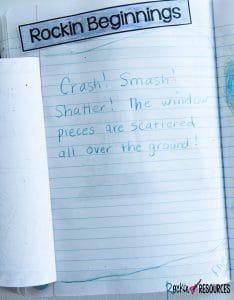 Rockin Beginnings
Crash! Smash!
Shatter! The window
pieces are scattered
all over the ground!
Rockin RESOURCES